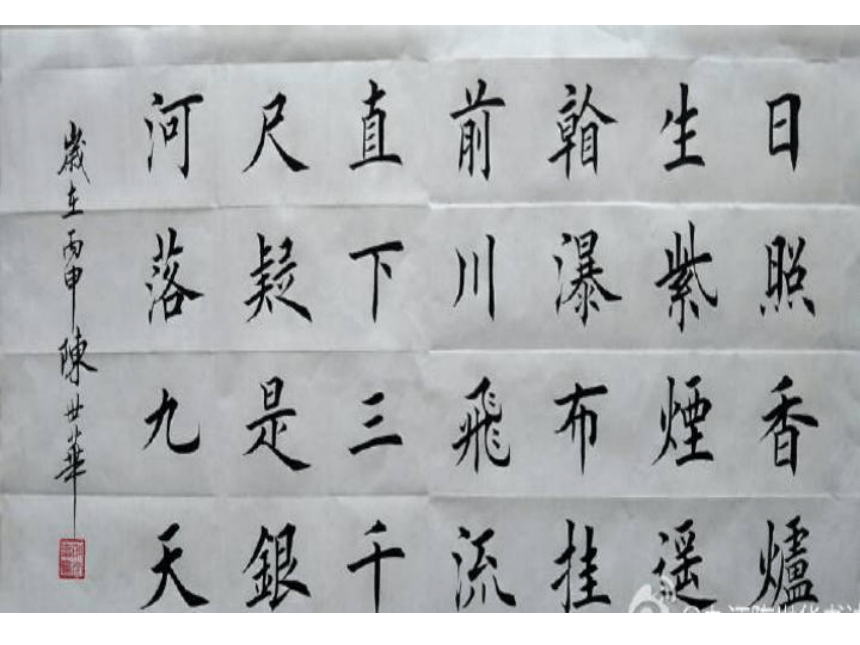 日照香爐
生紫煙遥
看瀑布挂
前川飛流
直下三千
尺疑是銀
河落九天
歲在丙申 陳世華